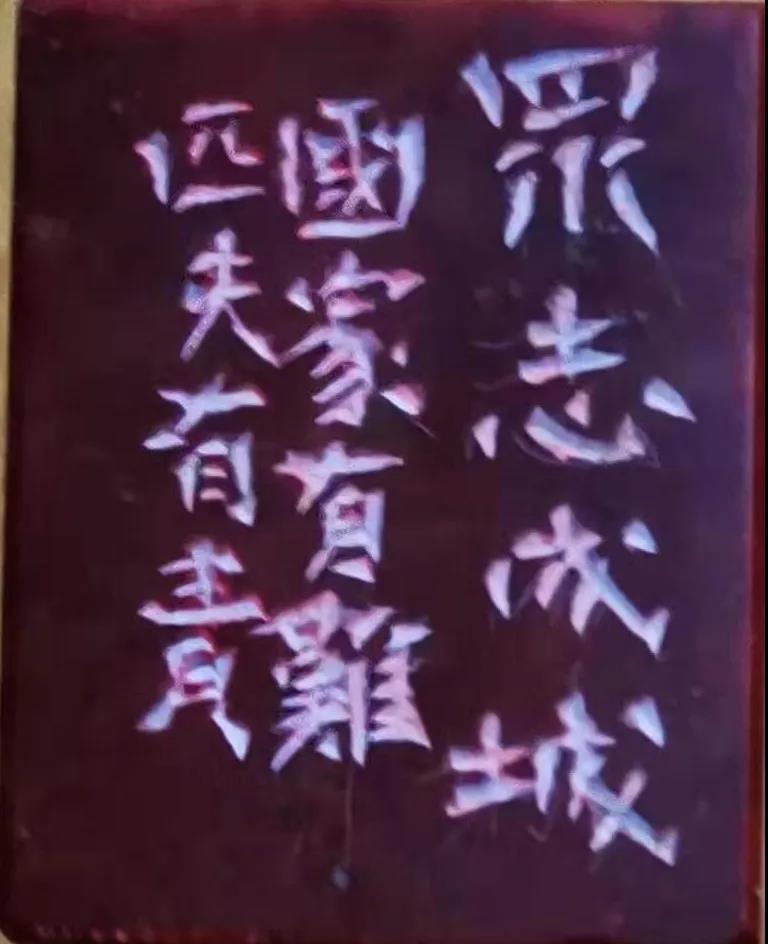 眾志成城
國家有難
匹夫有責